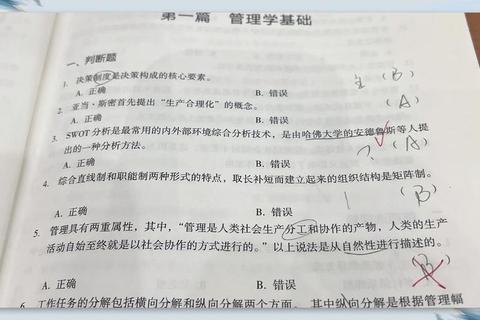 第一篇 管理学基础
一、判断题
1. 决策制度是决策构成的核心要素。
A. 正确 B. 错误 主 (B)
2. 亚当·斯密首先提出“生产合理化”的概念。
A. 正确 B. 错误 (A)
3. SWOT分析是最常用的内外部环境综合分析技术，是由哈佛大学的安德鲁斯等人提
出的一种分析方法。
A. 正确 B. 错误 (A)
4. 综合直线制和职能制两种形式的特点，取长补短而建立起来的组织结构是矩阵制。
A. 正确 B. 错误 (B)
5. 管理具有两重属性，其中，“管理是人类社会生产分工和协作的产物，人类的生产
活动自始至终就是以社会协作的方式进行的。”以上说法是从自然性进行描述的。
A. 正确 B. 错误 (B)
6. 工作任务的分解包括横向分解和纵向分解两个方面。其中纵向分解是根据管理幅